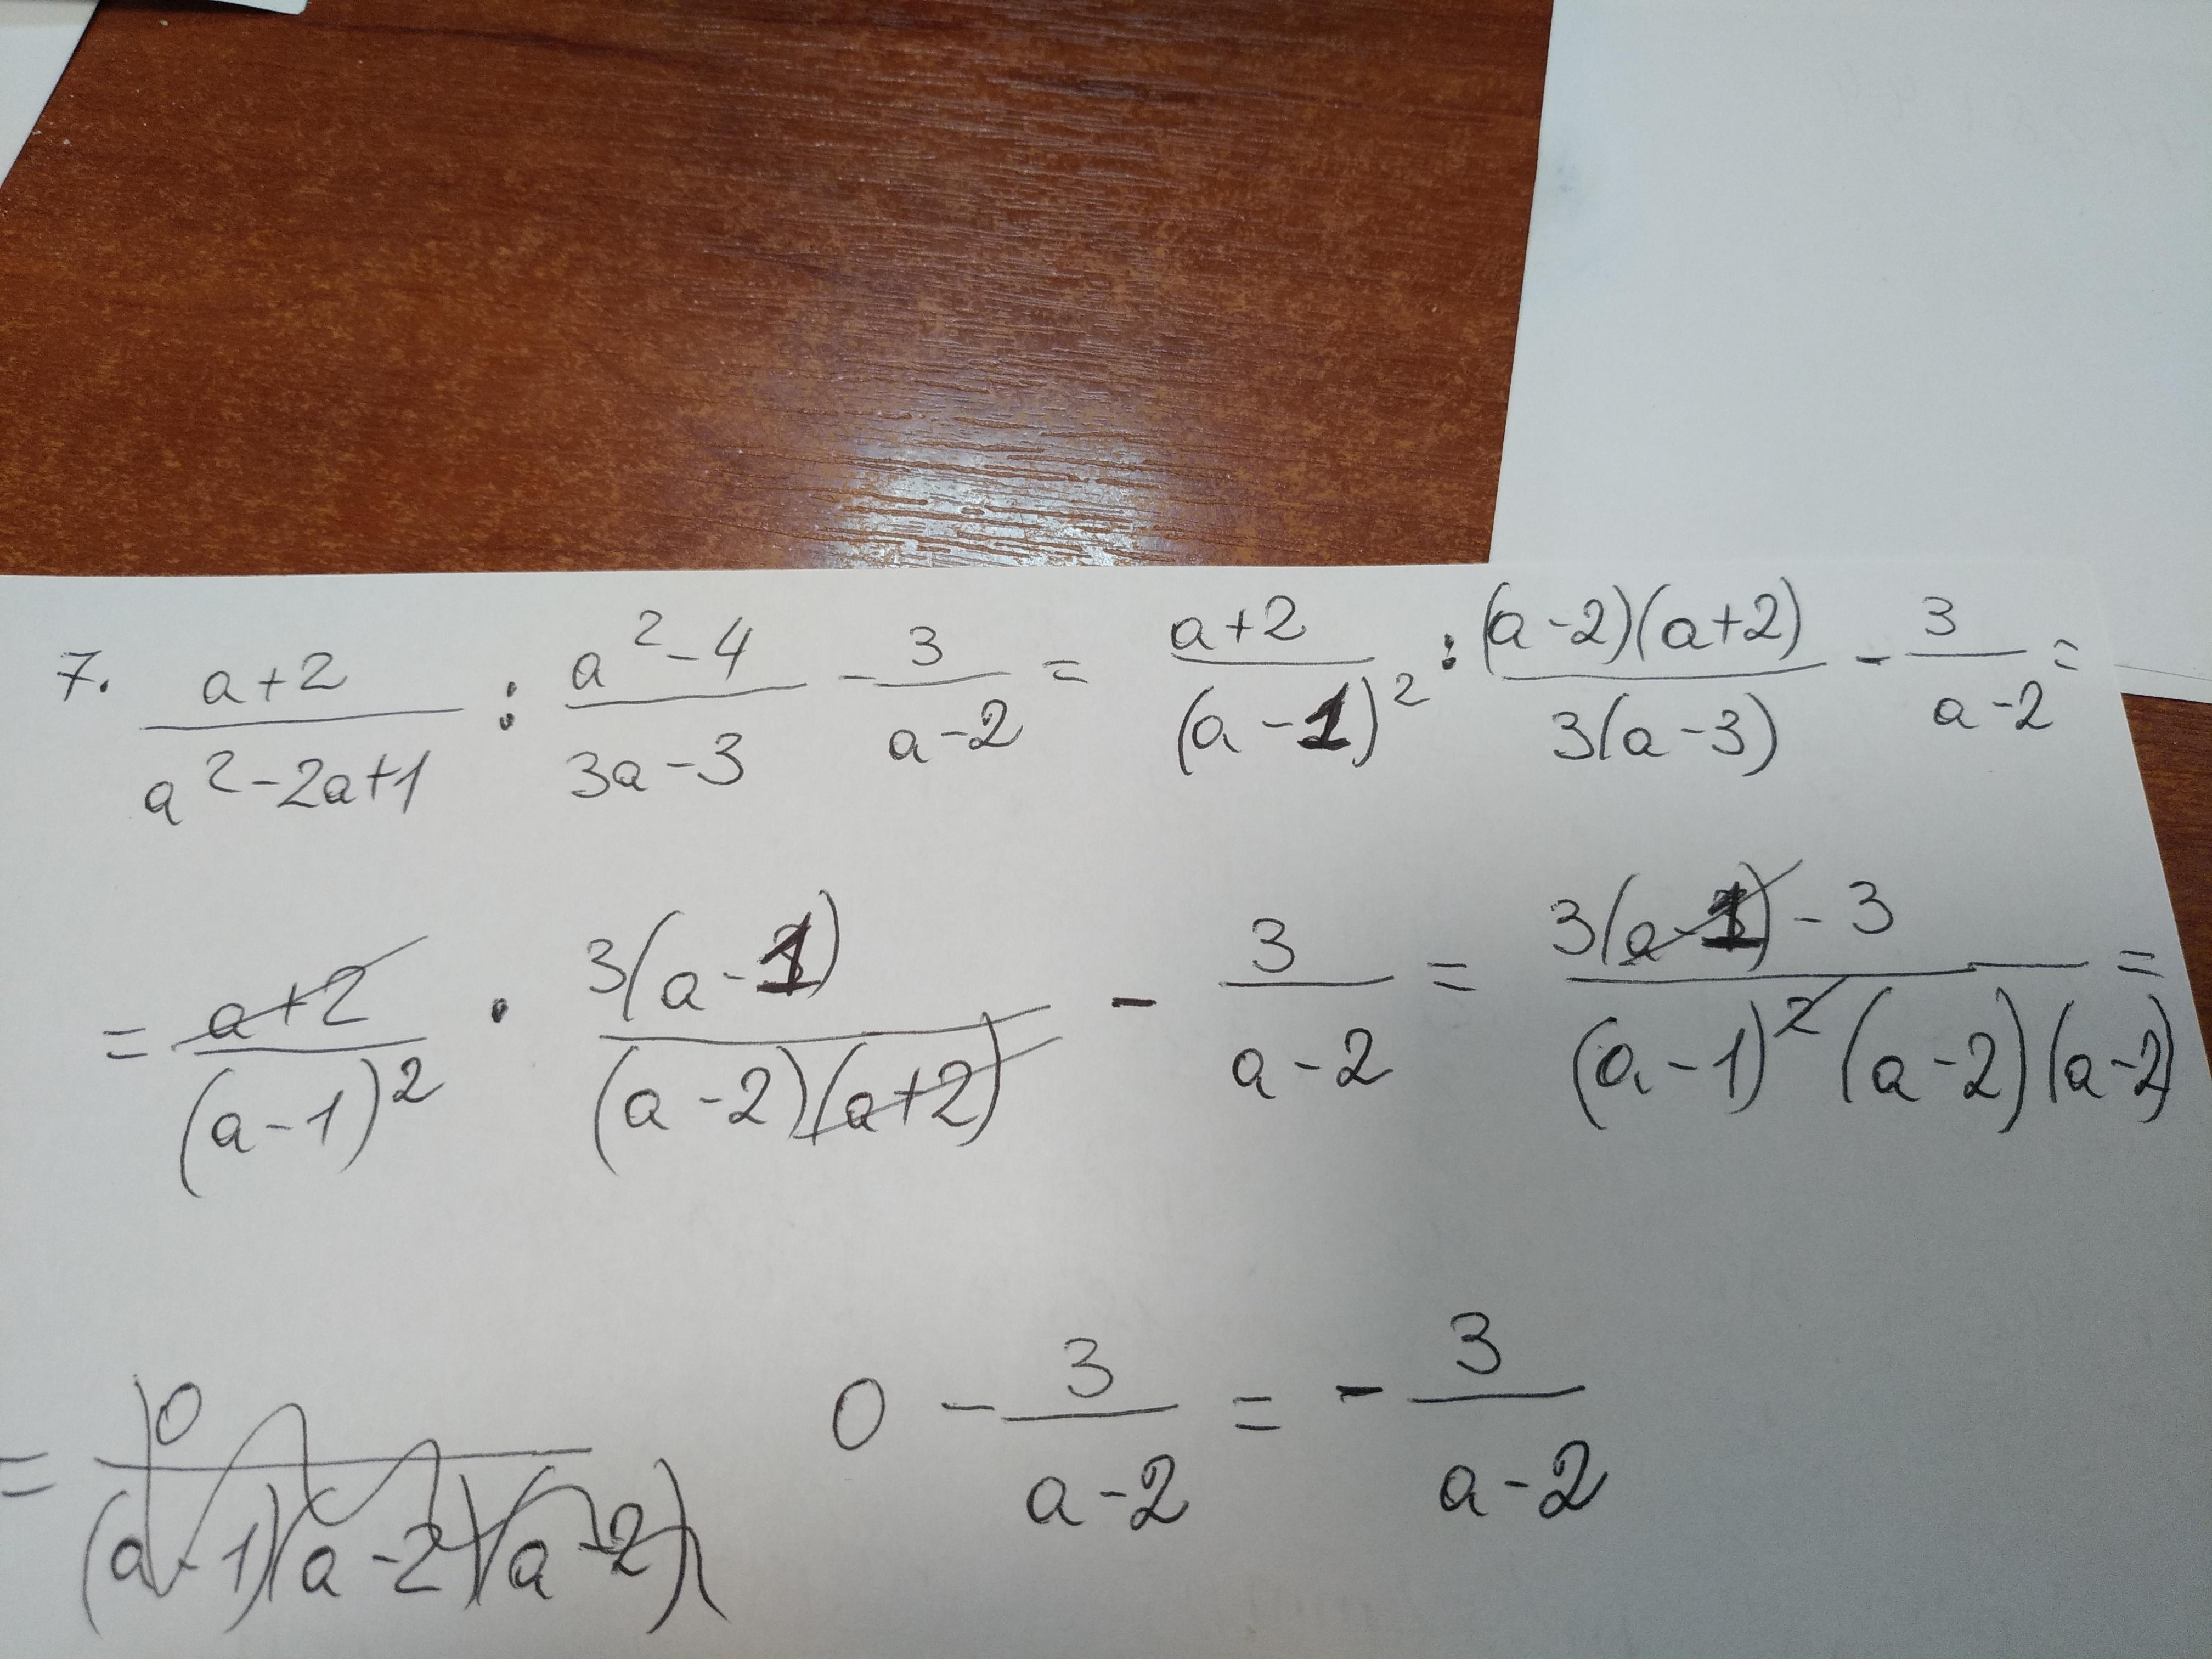 7. (a+2)/(a²-2a+1) : (a²-4)/(3a-3) - 3/(a-2) = (a+2)/(a-1)² : (a-2)(a+2)/3(a-3) - 3/(a-2) =
= (a+2)/(a-1)² · 3(a-1)/(a-2)(a+2) - 3/(a-2) = 3(a-1)-3/(a-1)²(a-2)(a-2) =
= 0/(a-1)(a-2)(a-2) 0 - 3/(a-2) = - 3/(a-2)